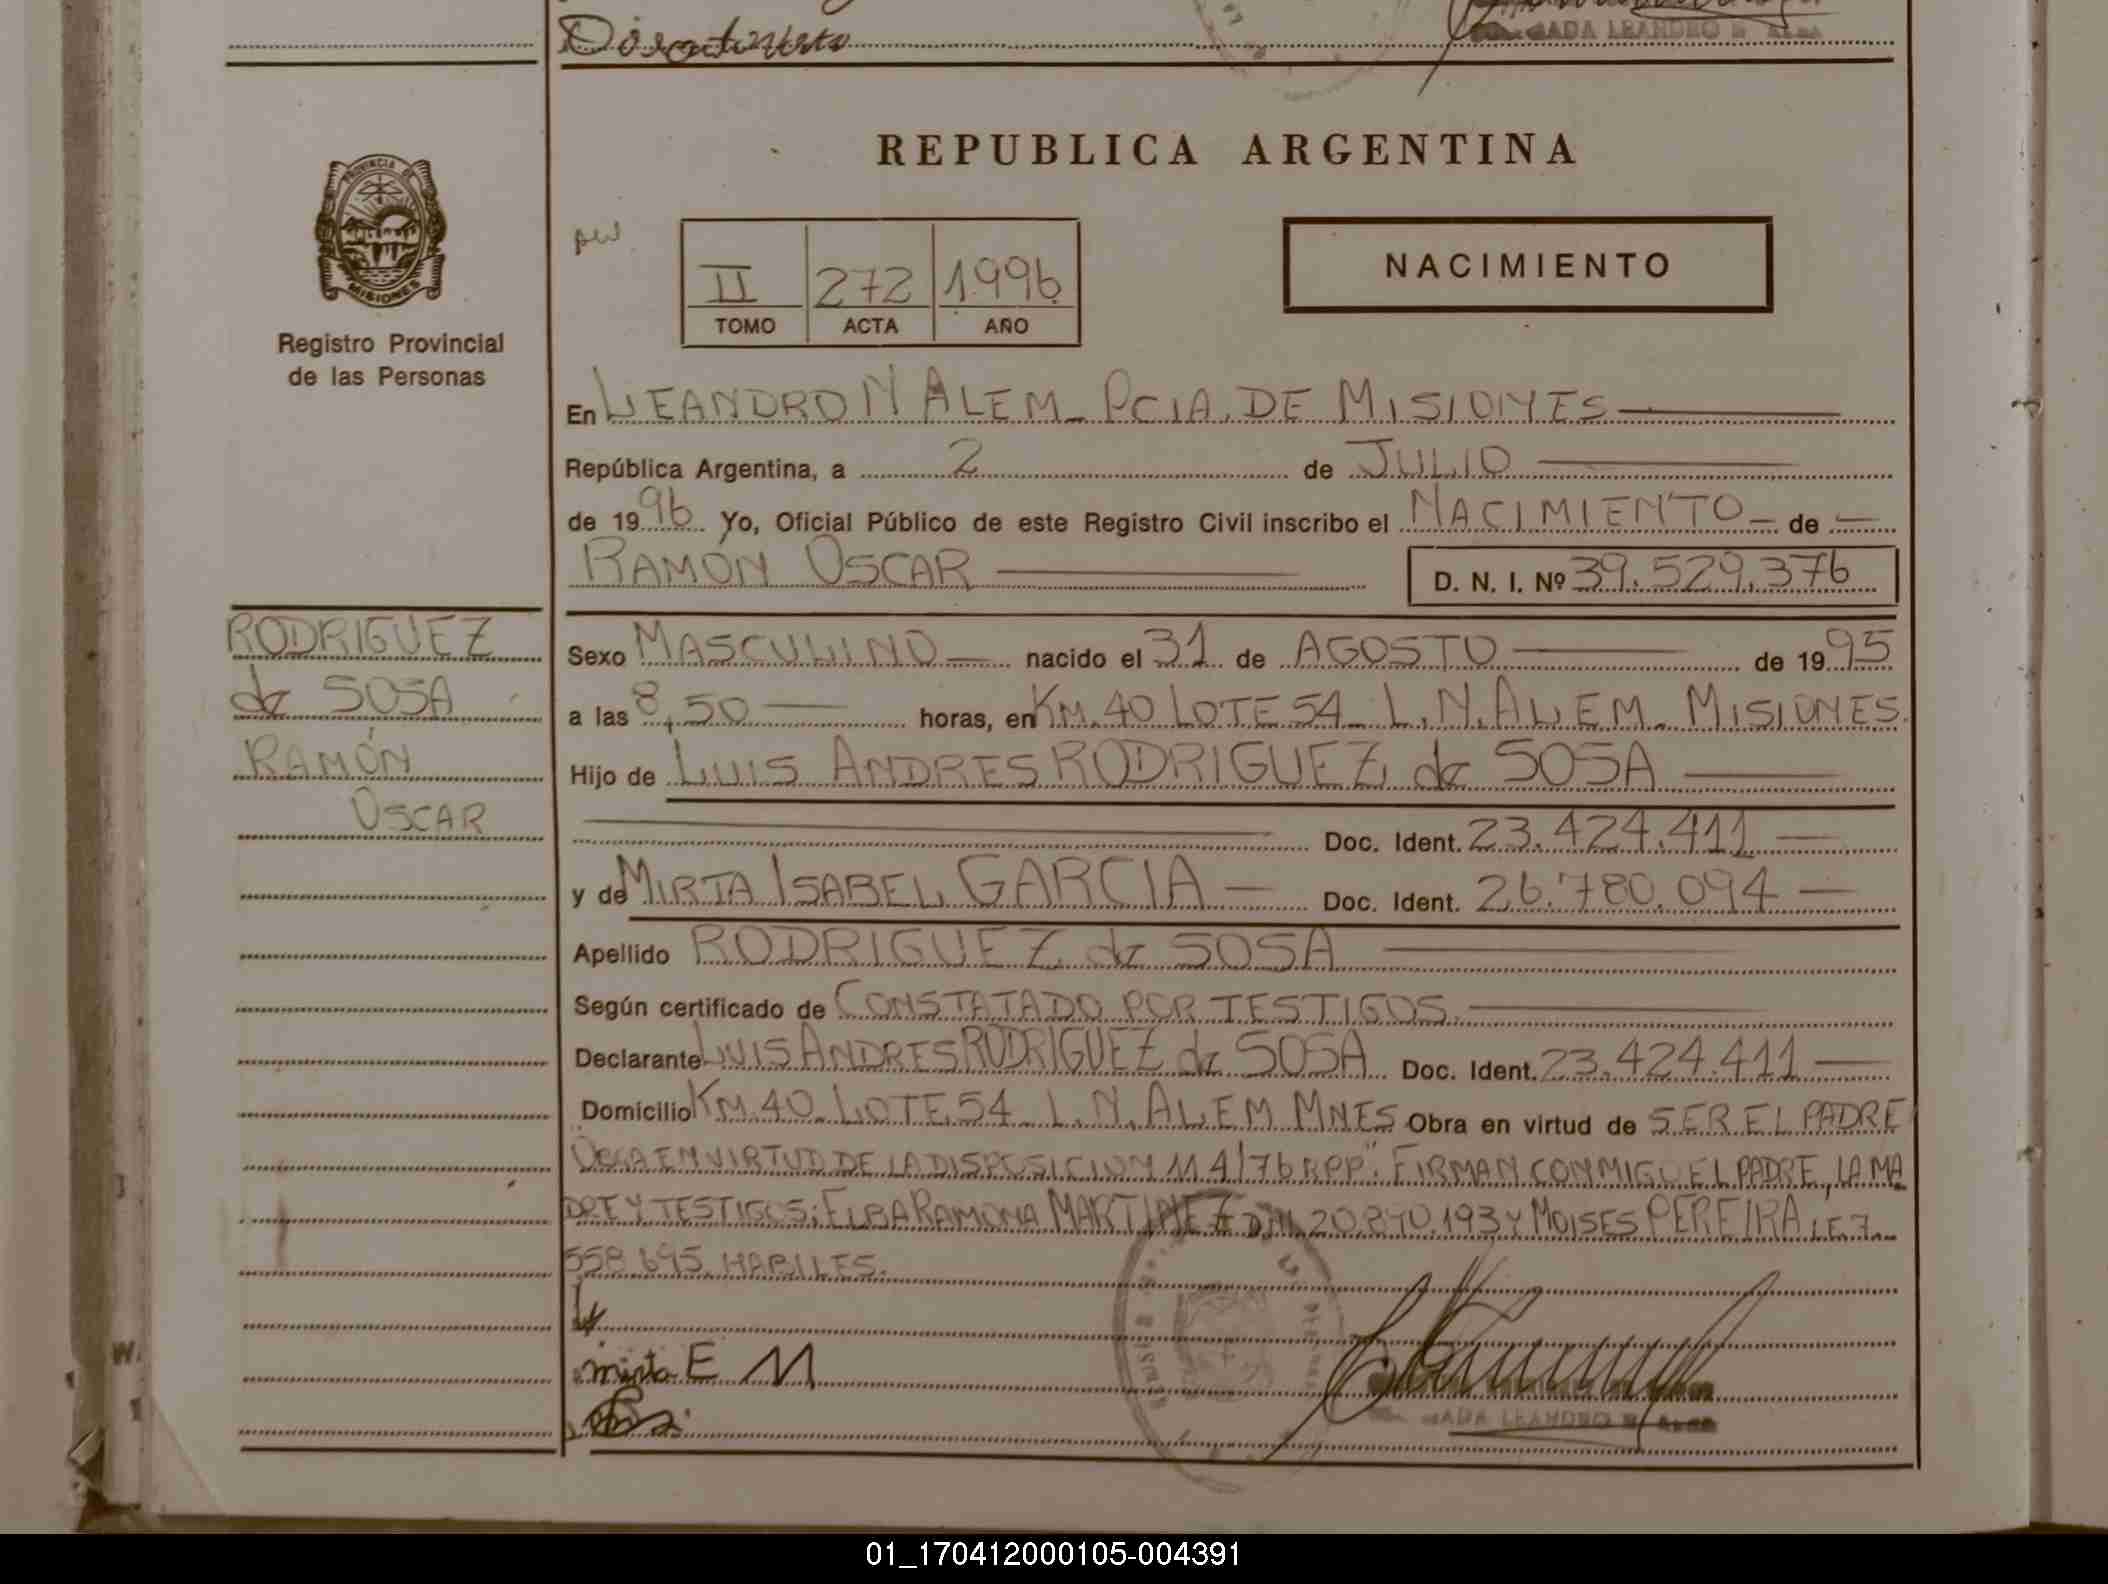 REPUBLICA ARGENTINA
PROVINCIA DE
MISIONES
Registro Provincial
de las Personas
II 272 1996
TOMO ACTA AÑO
NACIMIENTO
En LEANDRO N ALEM - PCIA. DE MISIONES
República Argentina, a 2 de JULIO
de 1996 Yo, Oficial Público de este Registro Civil inscribo el NACIMIENTO de
RAMÓN OSCAR D. N. I. Nº 39.529.376
RODRIGUEZ
de SOSA
RAMÓN
OSCAR
Sexo MASCULINO nacido el 31 de AGOSTO de 1995
a las 8,50 horas, en KM. 40 LOTE 54 - L.N. ALEM - MISIONES.
Hijo de LUIS ANDRES RODRIGUEZ de SOSA
Doc. Ident. 23.424.411
y de MIRTA ISABEL GARCIA Doc. Ident. 26.780.094
Apellido RODRIGUEZ de SOSA
Según certificado de CONSTATADO POR TESTIGOS.
Declarante LUIS ANDRES RODRIGUEZ de SOSA Doc. Ident. 23.424.411
Domicilio KM. 40 - LOTE 54 L.N. ALEM MNES Obra en virtud de SER EL PADRE
EN VIRTUD DE LA DISPOSICION 114/76 RPP". FIRMAN CONMIGO EL PADRE, LA MA
DRE Y TESTIGOS: ELBA RAMONA MARTINEZ 20.840.193 Y MOISES PEREIRA L.E. 7.
558.695. HABILES.
mirta E M
LEANDRO N
01_170412000105-004391